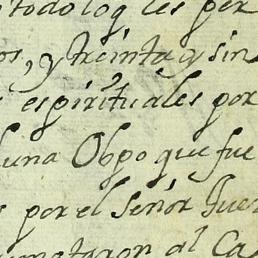 todo lo q les per
os, y treinta y sin
espirituales por
luna Obpo que fue
por el Señor Guer
mataron al Ca